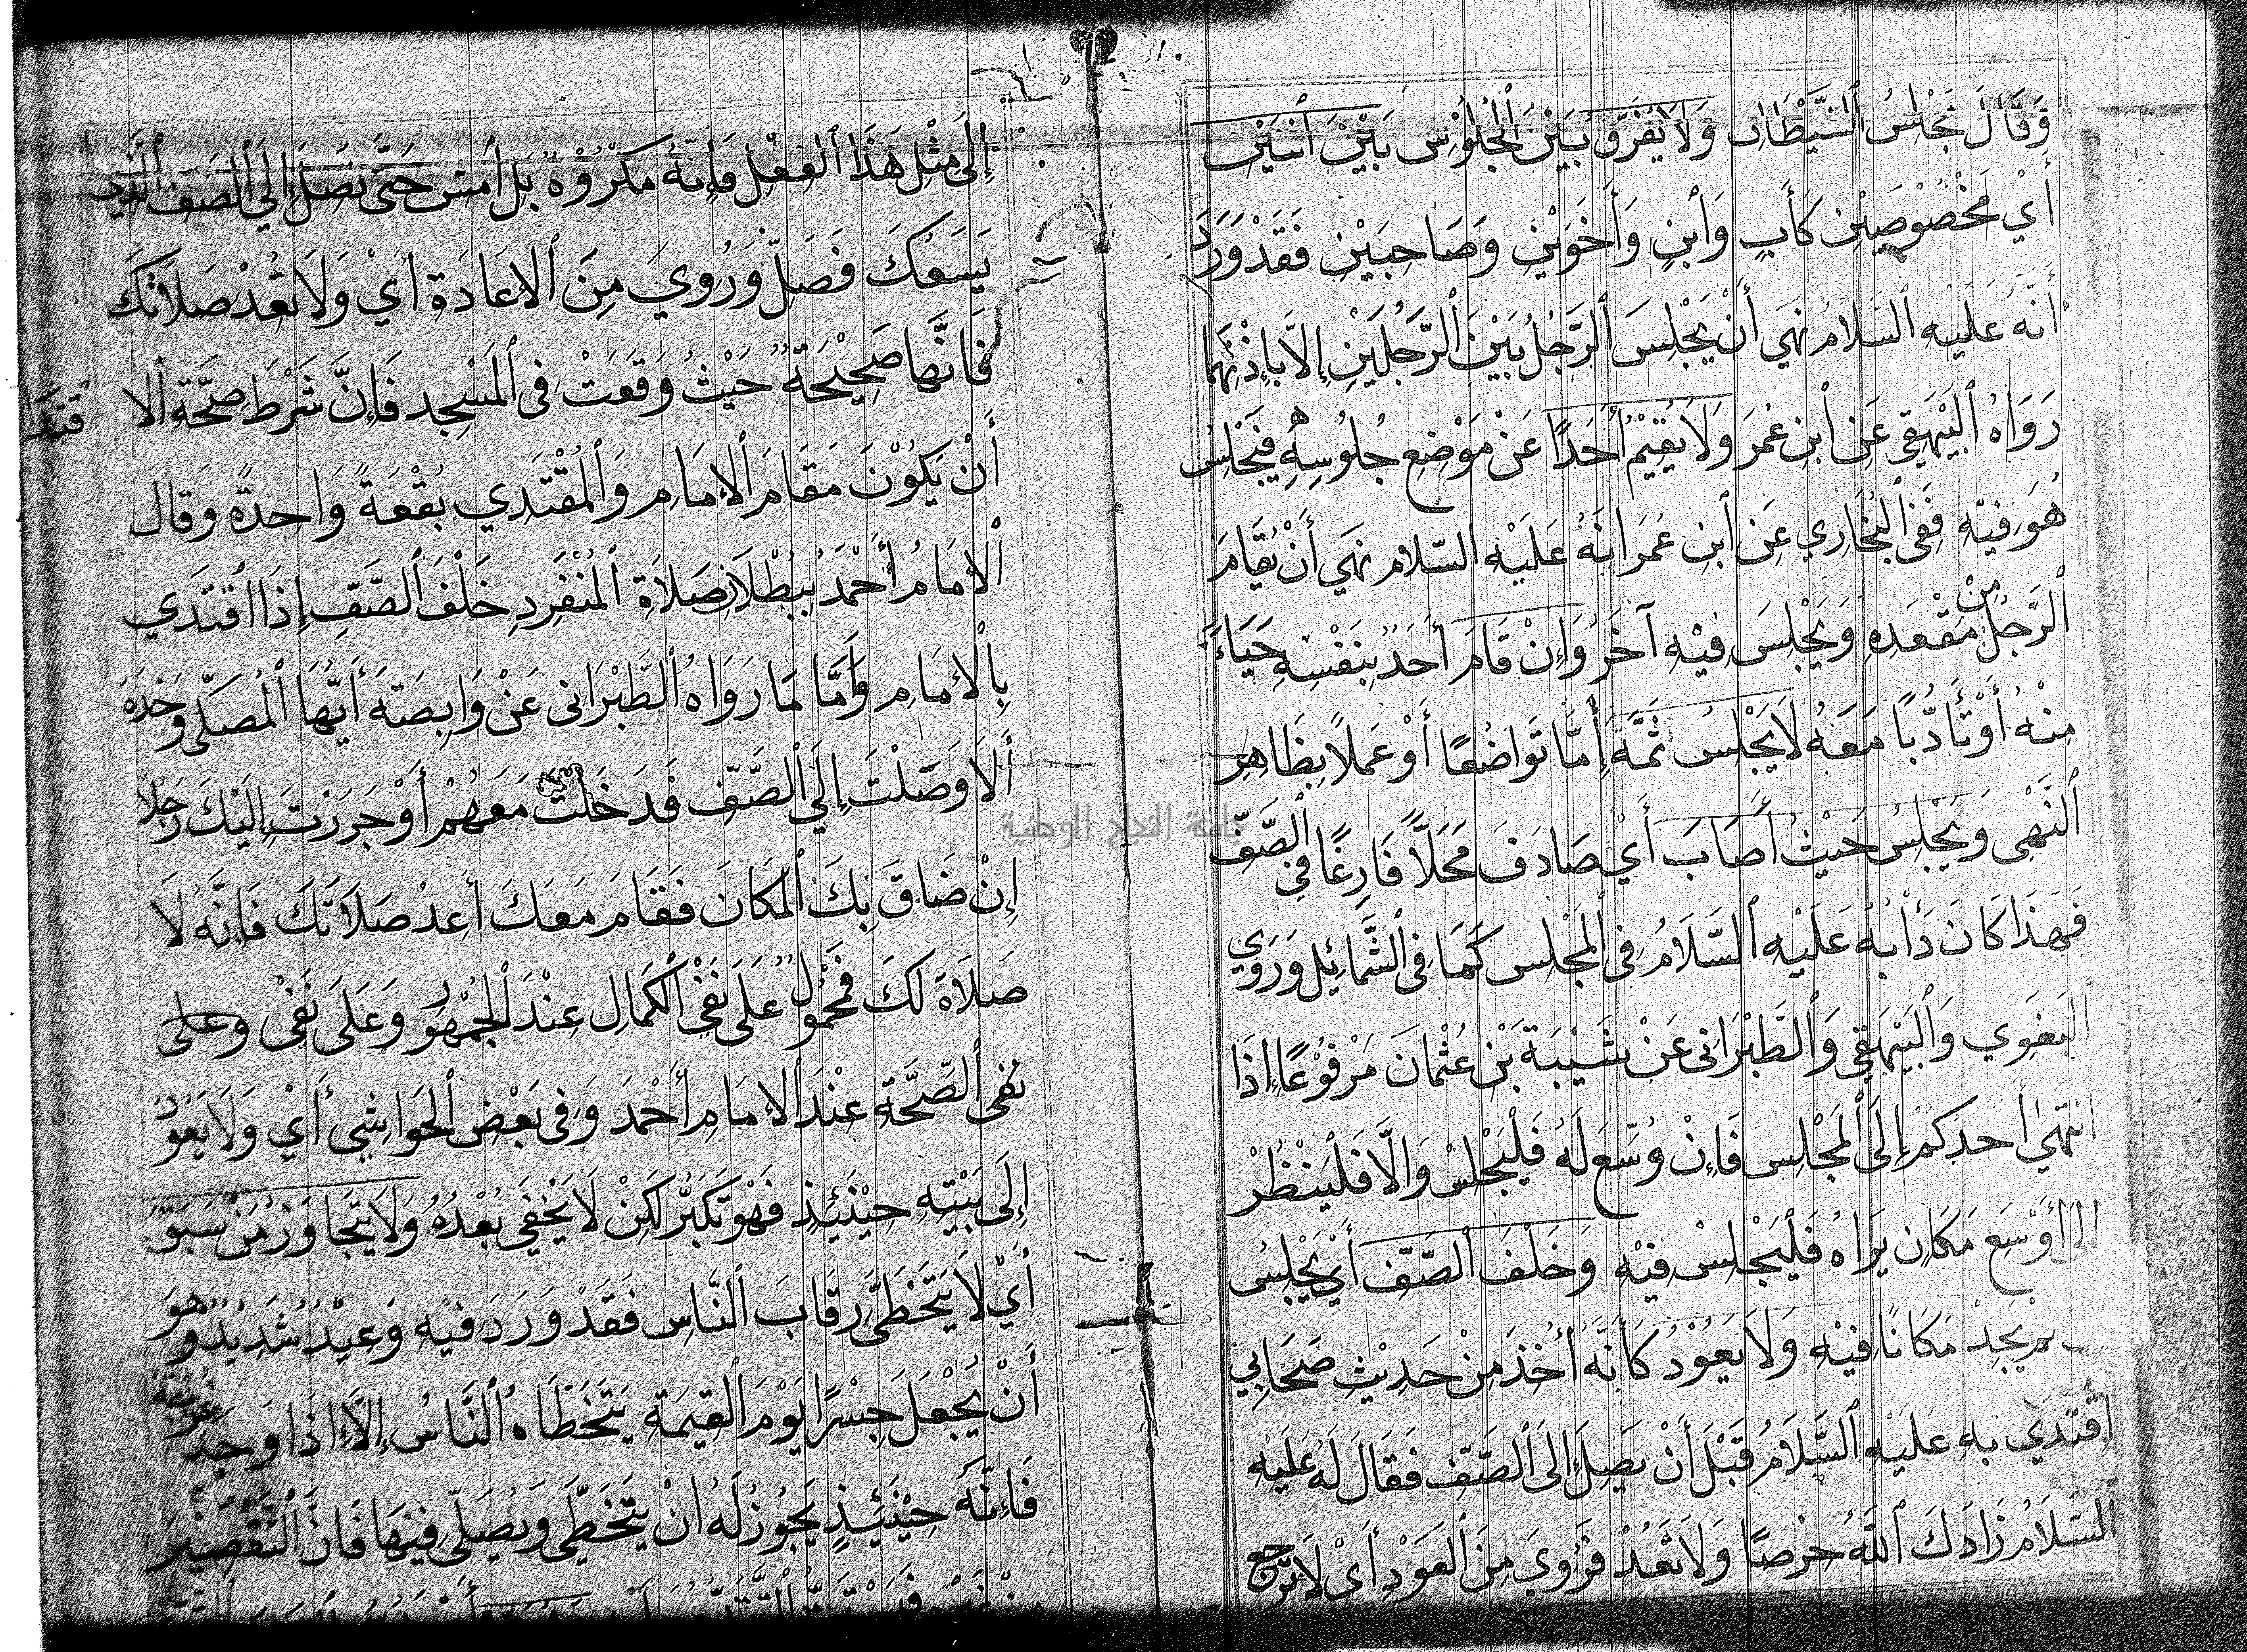 وَقَالَ مَجْلِسُ ٱلشَّيْطَانِ وَلَا يُفَرِّقُ بَيْنَ ٱلْجُلُوْسِ بَيْنَ ٱثْنَيْنِ
أَيْ مَخْصُوْصِيْنِ كَأَبٍ وَٱبْنٍ وَأَخَوَيْنِ وَصَاحِبَيْنِ فَقَدْ وَرَدَ
أَنَّهُ عَلَيْهِ ٱلسَّلَامُ نَهَى أَنْ يَجْلِسَ ٱلرَّجُلُ بَيْنَ ٱلرَّجُلَيْنِ إِلَّا بِإِذْنِهِمَا
رَوَاهُ ٱلْبَيْهَقِي عَنِ ٱبْنِ عُمَرَ وَلَا يُقِيْمُ أَحَدًا عَنْ مَوْضِعِ جُلُوسِهِ فَيَجْلِسُ
هُوَ فِيْهِ فَفِي ٱلْبُخَارِي عَنِ ٱبْنِ عُمَرَ انَهُ عَلَيْهِ السّلام نَهَى أَنْ يُقَامَ
ٱلرَّجُلُ مِنْ مَقْعَدِهِ وَيَجْلِسَ فِيْهِ آخَرُ وَإِنْ قَامَ أَحَدٌ بِنَفْسِهِ حَيَاءً
مِنْهُ أَوْ تَأَدُّبًا مَعَهُ لَا يَجْلِسُ ثَمَّةَ إِمَّا تَوَاضُعًا أَوْ عَمَلًا بِظَاهِرِ
ٱلنَّهْى وَيَجْلِسُ حَيْثُ أَصَابَ أَيْ صَادَفَ مَحَلًّا فَارِغًا فِي ٱلصَّفِّ
فَهَذَا كَانَ دَأْبُهُ عَلَيْهِ ٱلسَّلَامُ فِى ٱلْمَجْلِس كَمَا فِى ٱلشَّمَائِلِ وَرَوَي
ٱلْبَغَوِي وَٱلْبَيْهَقِي وَٱلطَّبْرَانِى عَنْ شَيْبَةَ بْنِ عُثْمَانَ مَرْفُوْعًا إِذَا
انْتَهَى أَحَدُكُمْ إِلَى ٱلْمَجْلِس فَإِنْ وُسِّعَ لَهُ فَلْيَجْلِسْ وَإِلَّا فَلْيَنْظُرْ
الَى أَوْسَعِ مَكَانٍ يَرَاهُ فَلْيَجْلِسْ فِيْهِ وَخَلْفَ ٱلصَّفِّ أَيْ يَجْلِسُ
لَمْ يَجِدْ مَكَانًا فِيْهِ وَلَا يَعُوْدُ كَأَنَّهُ أُخِذَ مِنْ حَدِيْثِ صَحَابِي
إِقْتَدَي بِهِ عَلَيْهِ ٱلسَّلَامُ قَبْلَ أَنْ يَصِلَ إِلَى ٱلصَّفِّ فَقَالَ لَهُ عَلَيْهِ
ٱلسَّلَامُ زَادَكَ ٱللَّهُ حِرْصًا وَلَا تَعُدْ فَرُوِيَ مِنَ ٱلْعَوْدِ أَىْ لَا تَرْجِعْ
إِلَى مِثْلِ هَذَا ٱلْفِعْلِ فَإِنَّهُ مَكْرُوْهٌ بَلِ ٱمْشِ حَتَّى تَصِلَ إِلَي ٱلصَّفِّ ٱلَّذِي
يَسَعُكَ فَصَلِّ وَرُوِيَ مِنَ ٱلْاِعَادَةِ أَيْ وَلَا تُعِدْ صَلَاتَكَ
فَانَّهَا صَحِيْحَةٌ حَيْثُ وَقَعَتْ فِى ٱلْمَسْجِدِ فَإِنَّ شَرْطَ صِحَّةِ ٱلا قْتِدَا
أَنْ يَكُوْنَ مَقَامَ ٱلْإِمَامِ وَٱلْمُقْتَدِي بُقْعَةً وَاحِدَةً وَقَالَ
ٱلْاِمَامُ أَحْمَدُ بِبُطْلَانِ صَلَاةِ ٱلْمُنْفَرِدِ خَلْفَ ٱلصَّفِّ إِذَا اقْتَدَي
بِالْاِمَامِ وَأَمَّا مَا رَوَاهُ ٱلطَّبْرَانِى عَنْ وَابِصَتَهَ أَيُّهَا ٱلْمُصَلِّى وَحْدَهُ
أَلَا وَصَلْتَ إِلَي ٱلصَّفِّ فَدَخَلْتَ مَعَهُمْ أَوْ جَرَرْتَ إِلَيْكَ رَجُلًا
إِنْ ضَاقَ بِكَ ٱلْمَكَانَ فَقَامَ مَعَكَ أَعِدْ صَلَاتَكَ فَإِنَّهُ لَا
صَلَاةَ لَكَ فَمَحْمُوْلٌ عَلَى نَفْيِ ٱلْكَمَالِ عِنْدَ ٱلْجُمْهُورِ وَعَلَى نَفْى وعلى
نفى ٱلصِّحَّةِ عِنْدَ ٱلْاِمَامِ أَحْمَدَ وَفِى بَعْضِ ٱلْحَوَاشِي أَيْ وَلَا يَعُوْدُ
إِلَى بَيْتِهِ حِيْنَئِذٍ فَهْوَ تَكَبُّرٌ لَكِنْ لَا يَخْفِي بُعْدُهُ وَلَا يَتَجَاوَزُ مَنْ سَبَقَ
أَيْ لَا يَتَخَطَّى رِقَابَ ٱلنَّاسِ فَقَدْ وَرَدَ فِيْهِ وَعِيْدٌ شَدِيْدٌ وَهُوَ
أَنْ يُجْعَلَ جِسْرًا يَوْمَ ٱلْقِيمَةِ يَتَخَطَاهُ ٱلنَّاسُ إِلَّا إِذَا وَجَدَ فُرْجَةً
فَإِنَّهُ حِيْنَئِذٍ يَجُوزُ لَهُ انْ يَتَخَطَّى وَيُصَلِّى فِيْهَا فَانَّ ٱلتَّقْصِيْرَ